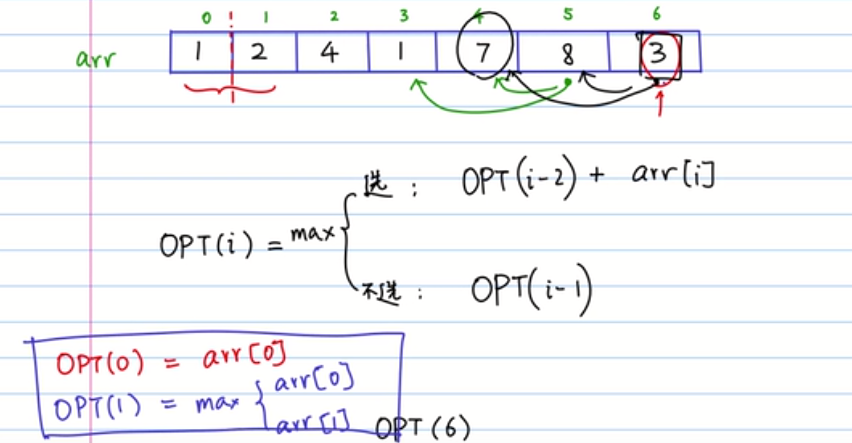 0 1 2 3 4 5 6
arr 1 2 4 1 7 8 3
选: OPT(i-2) + arr[i]
OPT(i) = max {
不选: OPT(i-1)
OPT(0) = arr[0]
OPT(1) = max { arr[0]
arr[1]
OPT(6)